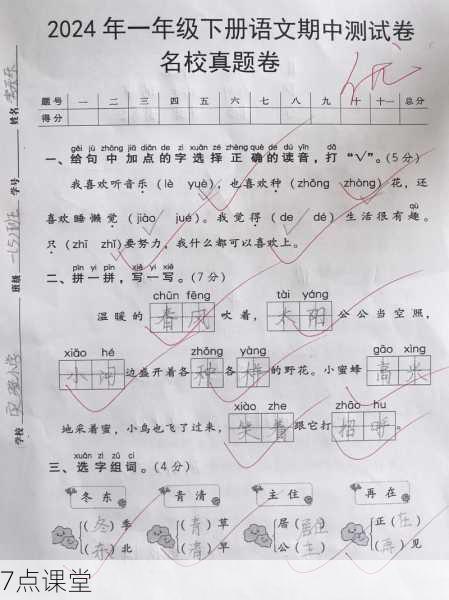 2024 年一年级下册语文期中测试卷
名校真题卷
优
题号 一 二 三 四 五 六 七 八 九 十 十一 总分
得分
gěi jù zhōng jiā diǎn de zì xuǎn zé zhèng què de dú yīn dǎ
一、给句中加点的字选择正确的读音，打“√”。(5分)
我喜欢听音乐（lè yuè），也喜欢种（zhǒng zhòng）花，还
喜欢睡懒觉（jiào jué）。我觉得（de dé）生活很有趣。
qù
只（zhī zhǐ）要努力，我什么都可以喜欢上。
pīn yi pīn xiě yi xiě
二、拼一拼，写一写。(7分)
chūn fēng tài yáng
温暖的 春风 吹着，太阳 公公当空照，
xiǎo hé zhǒng yàng gāo xìng
小河 边盛开着各 种 各 样 的野花。小蜜蜂 高兴
xiào zhe zhāo hu
地采着蜜，小鸟也飞了过来，笑着 跟它打 招呼。
xuǎn zì zǔ cí
三、选字组词。(4分)
冬 东 青 清 主 住 再 在
（冬）季 （青）草 居（住） 正（在）
（东）北 （清）早 公（主） （再）见
学校 班级 一(5)班 学号 姓名
7点课堂